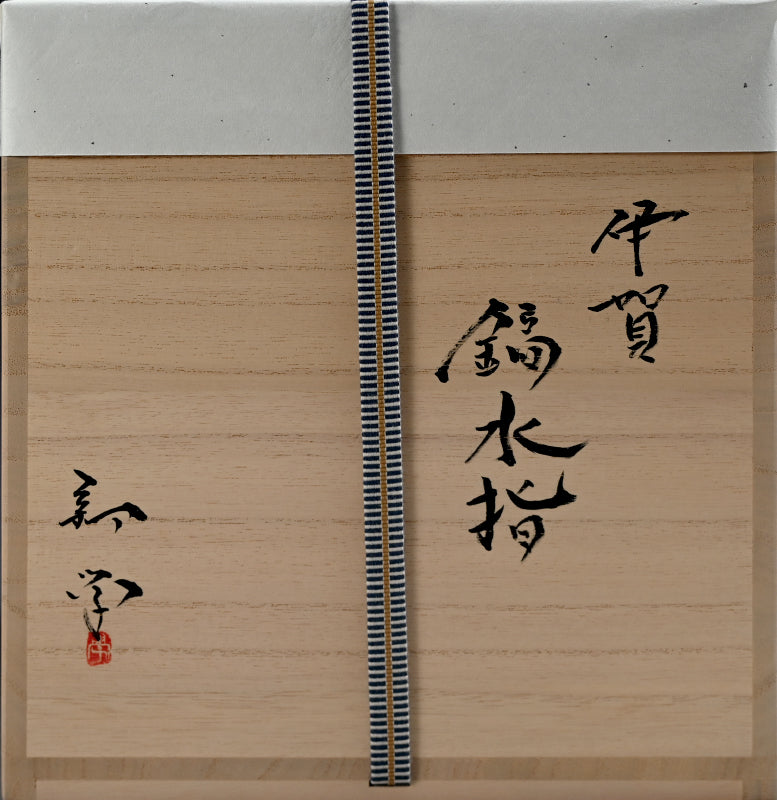 伊賀
鎬水指
新学